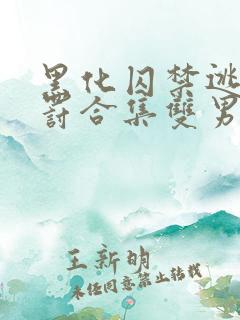 黑化囚禁逃
罰合集雙男
王新明
未经同意禁止转载